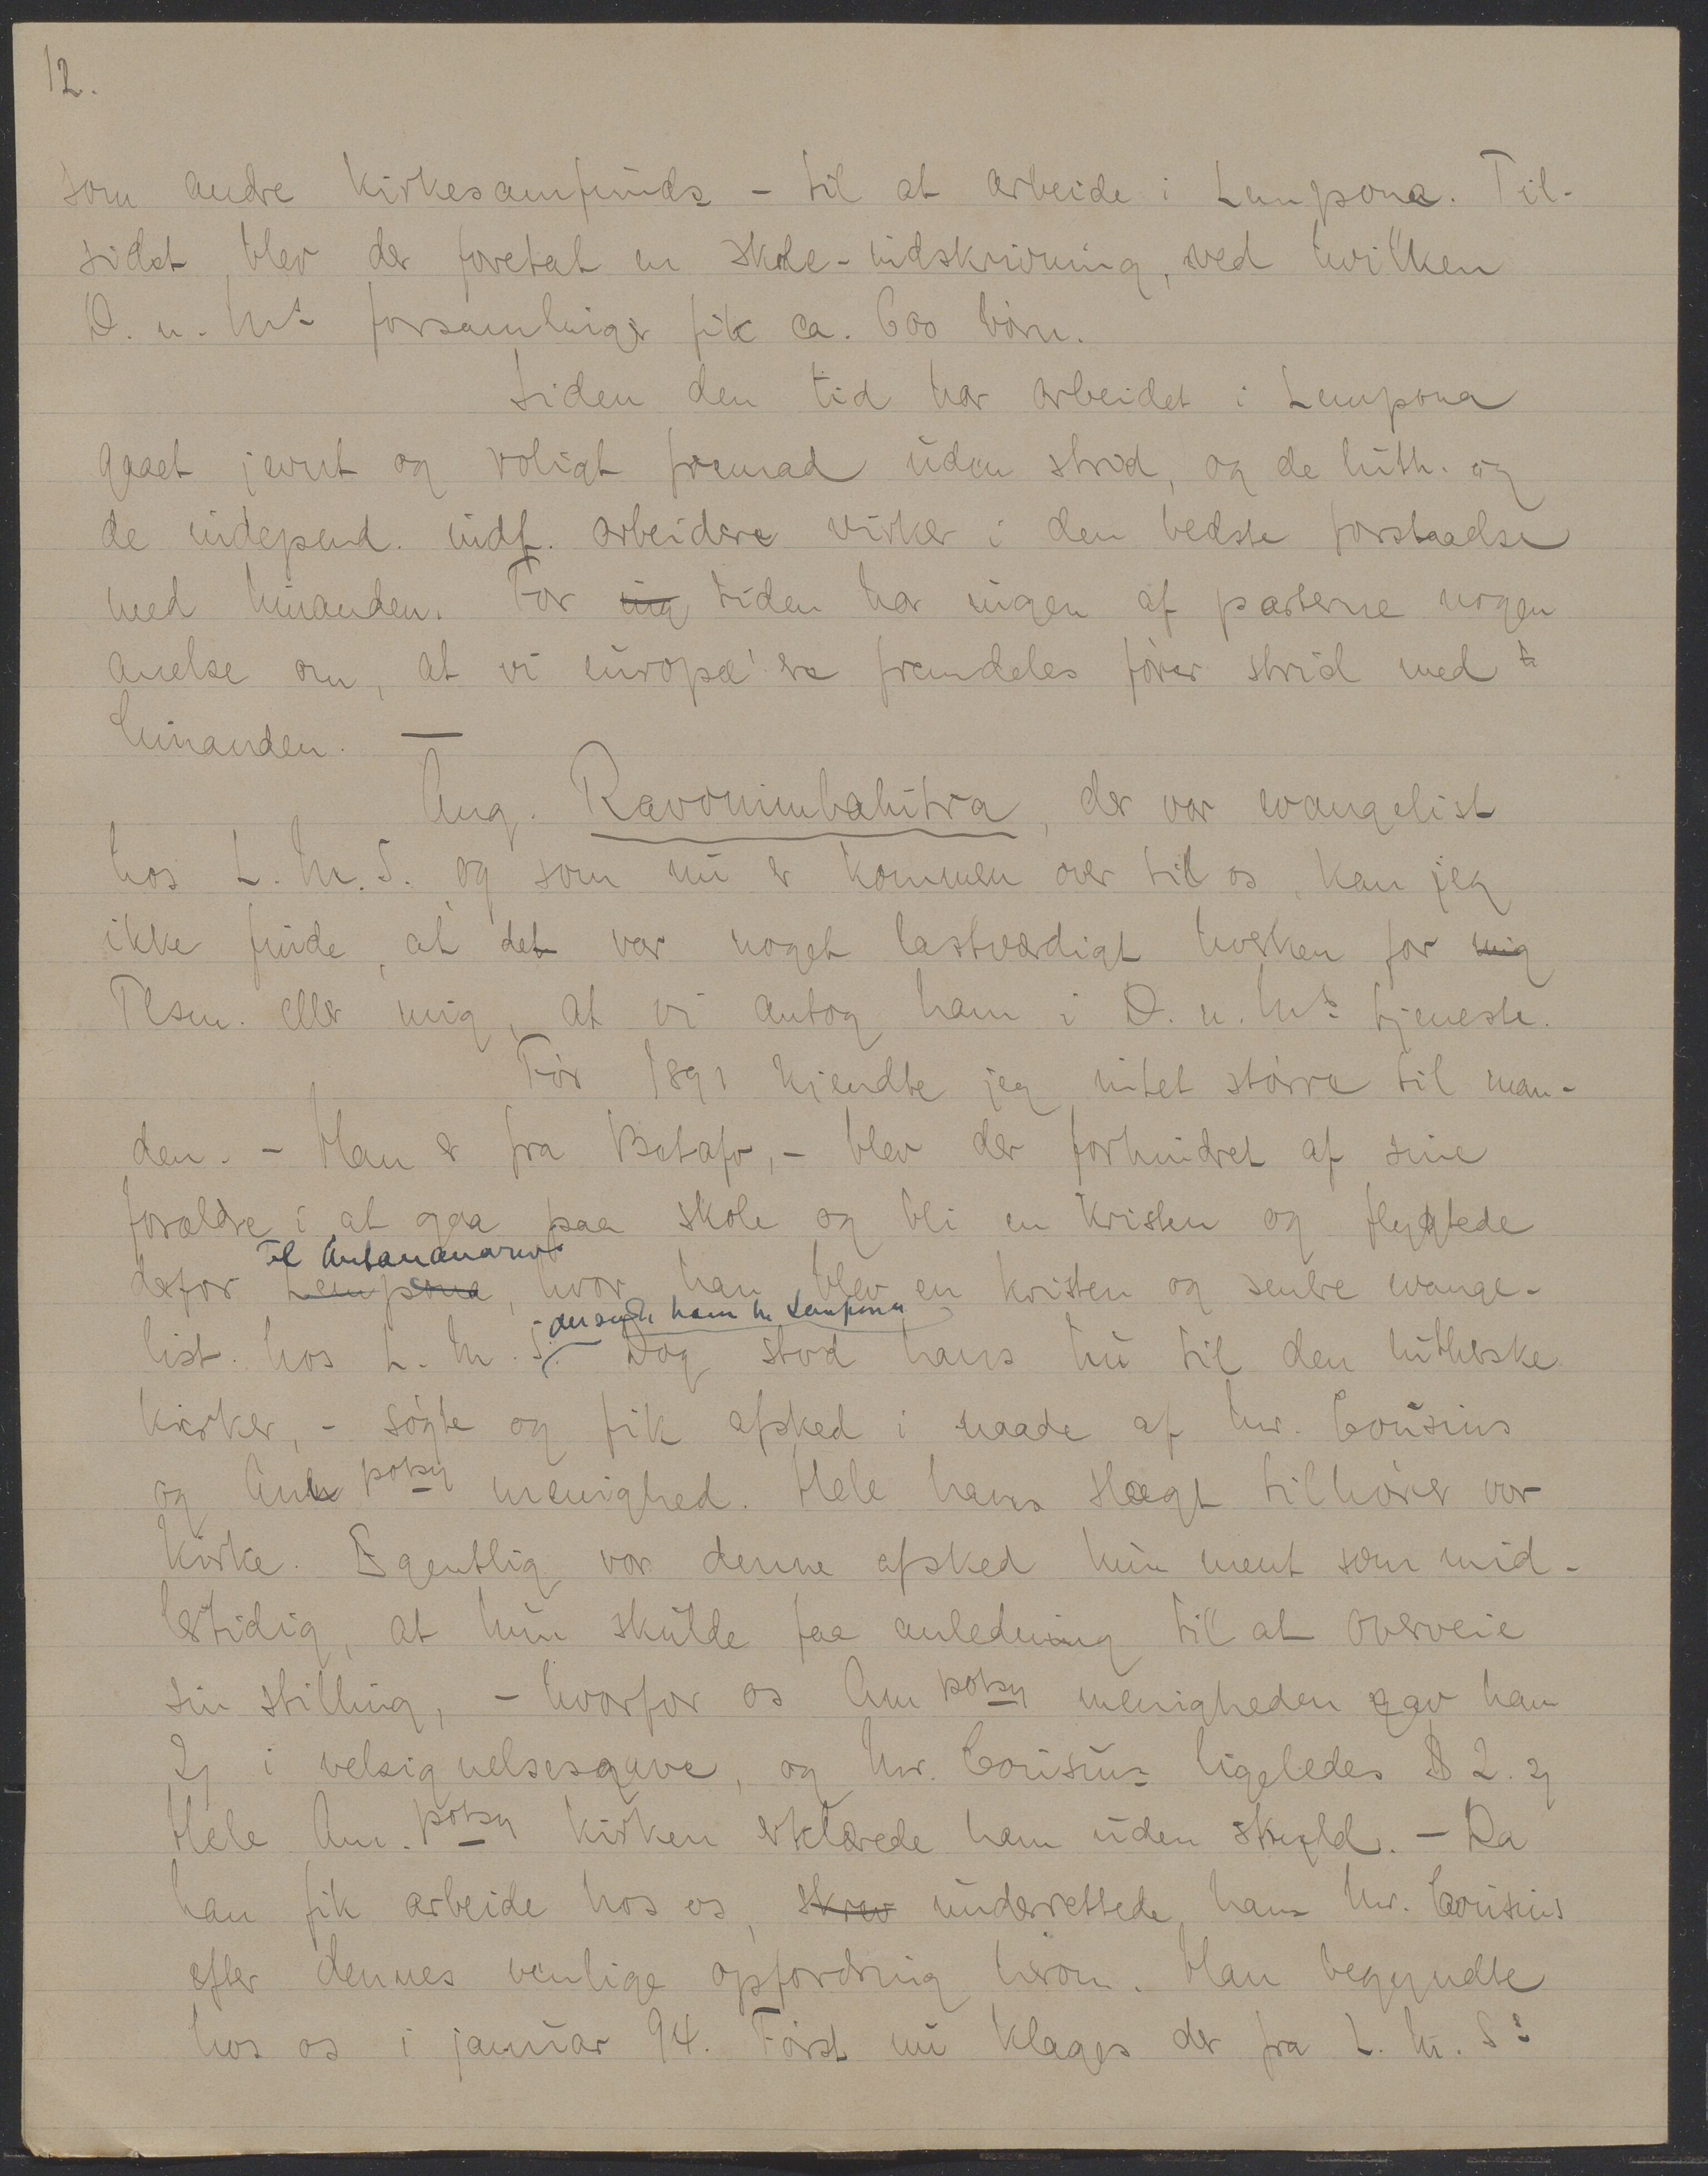 12.
som andre kirkesamfunds - til at arbeide i Lempona. Til-
sidst blev der foretat en skole-indskrivning, ved hvilken
D. n. Ms forsamlinger fik ca. 600 børn.
Siden den tid har arbeidet i Lempona
gaaet jevnt og roligt fremad uden strid, og de luth. og
de independ. indf. arbeidere virker i den bedste forstaaelse
med hinanden. For tiden har ingen af parterne nogen
anelse om, at vi europæ'ere fremdeles fører strid med
hinanden. —
Ang. Ravonimbahitra, der var evangelist
hos L. M. S. og som nu er kommen over til os, kan jeg
ikke finde, at det var noget lastværdigt hverken for mig
Tlsm. eller mig, at vi antog ham i D. n. Ms tjeneste.
Før 1891 kjendte jeg intet større til man-
den. - Han er fra Betafo, - blev der forhindret af sine
forældre i at gaa paa skole og bli en kristen og flygtede
til Antananarivo
derfor Lempona, hvor han blev en kristen og senere evange-
der sendte ham til Lempona
list hos L. M. S. Dog stod hans hu til den lutherske
kirker, - søgte og fik afsked i naade af Mr. Cousins
og Am potsy menighed. Hele hans slægt tilhører vor
kirke. Egentlig var denne afsked kun ment som mid-
lertidig, at han skulde faa anledning til at overveie
sin stilling, - hvorfor os Am potsy menigheden gav ham
i velsignelsesgave, og Mr. Cousins ligeledes $ 2.
Hele Am. potsy kirken erklærede ham uden skyld. - Da
han fik arbeide hos os, skrev underrettede han Mr. Cousins
efter dennes venlige opfordring herom. Han begyndte
hos os i januar 94. Først nu klages der fra L. M. S: